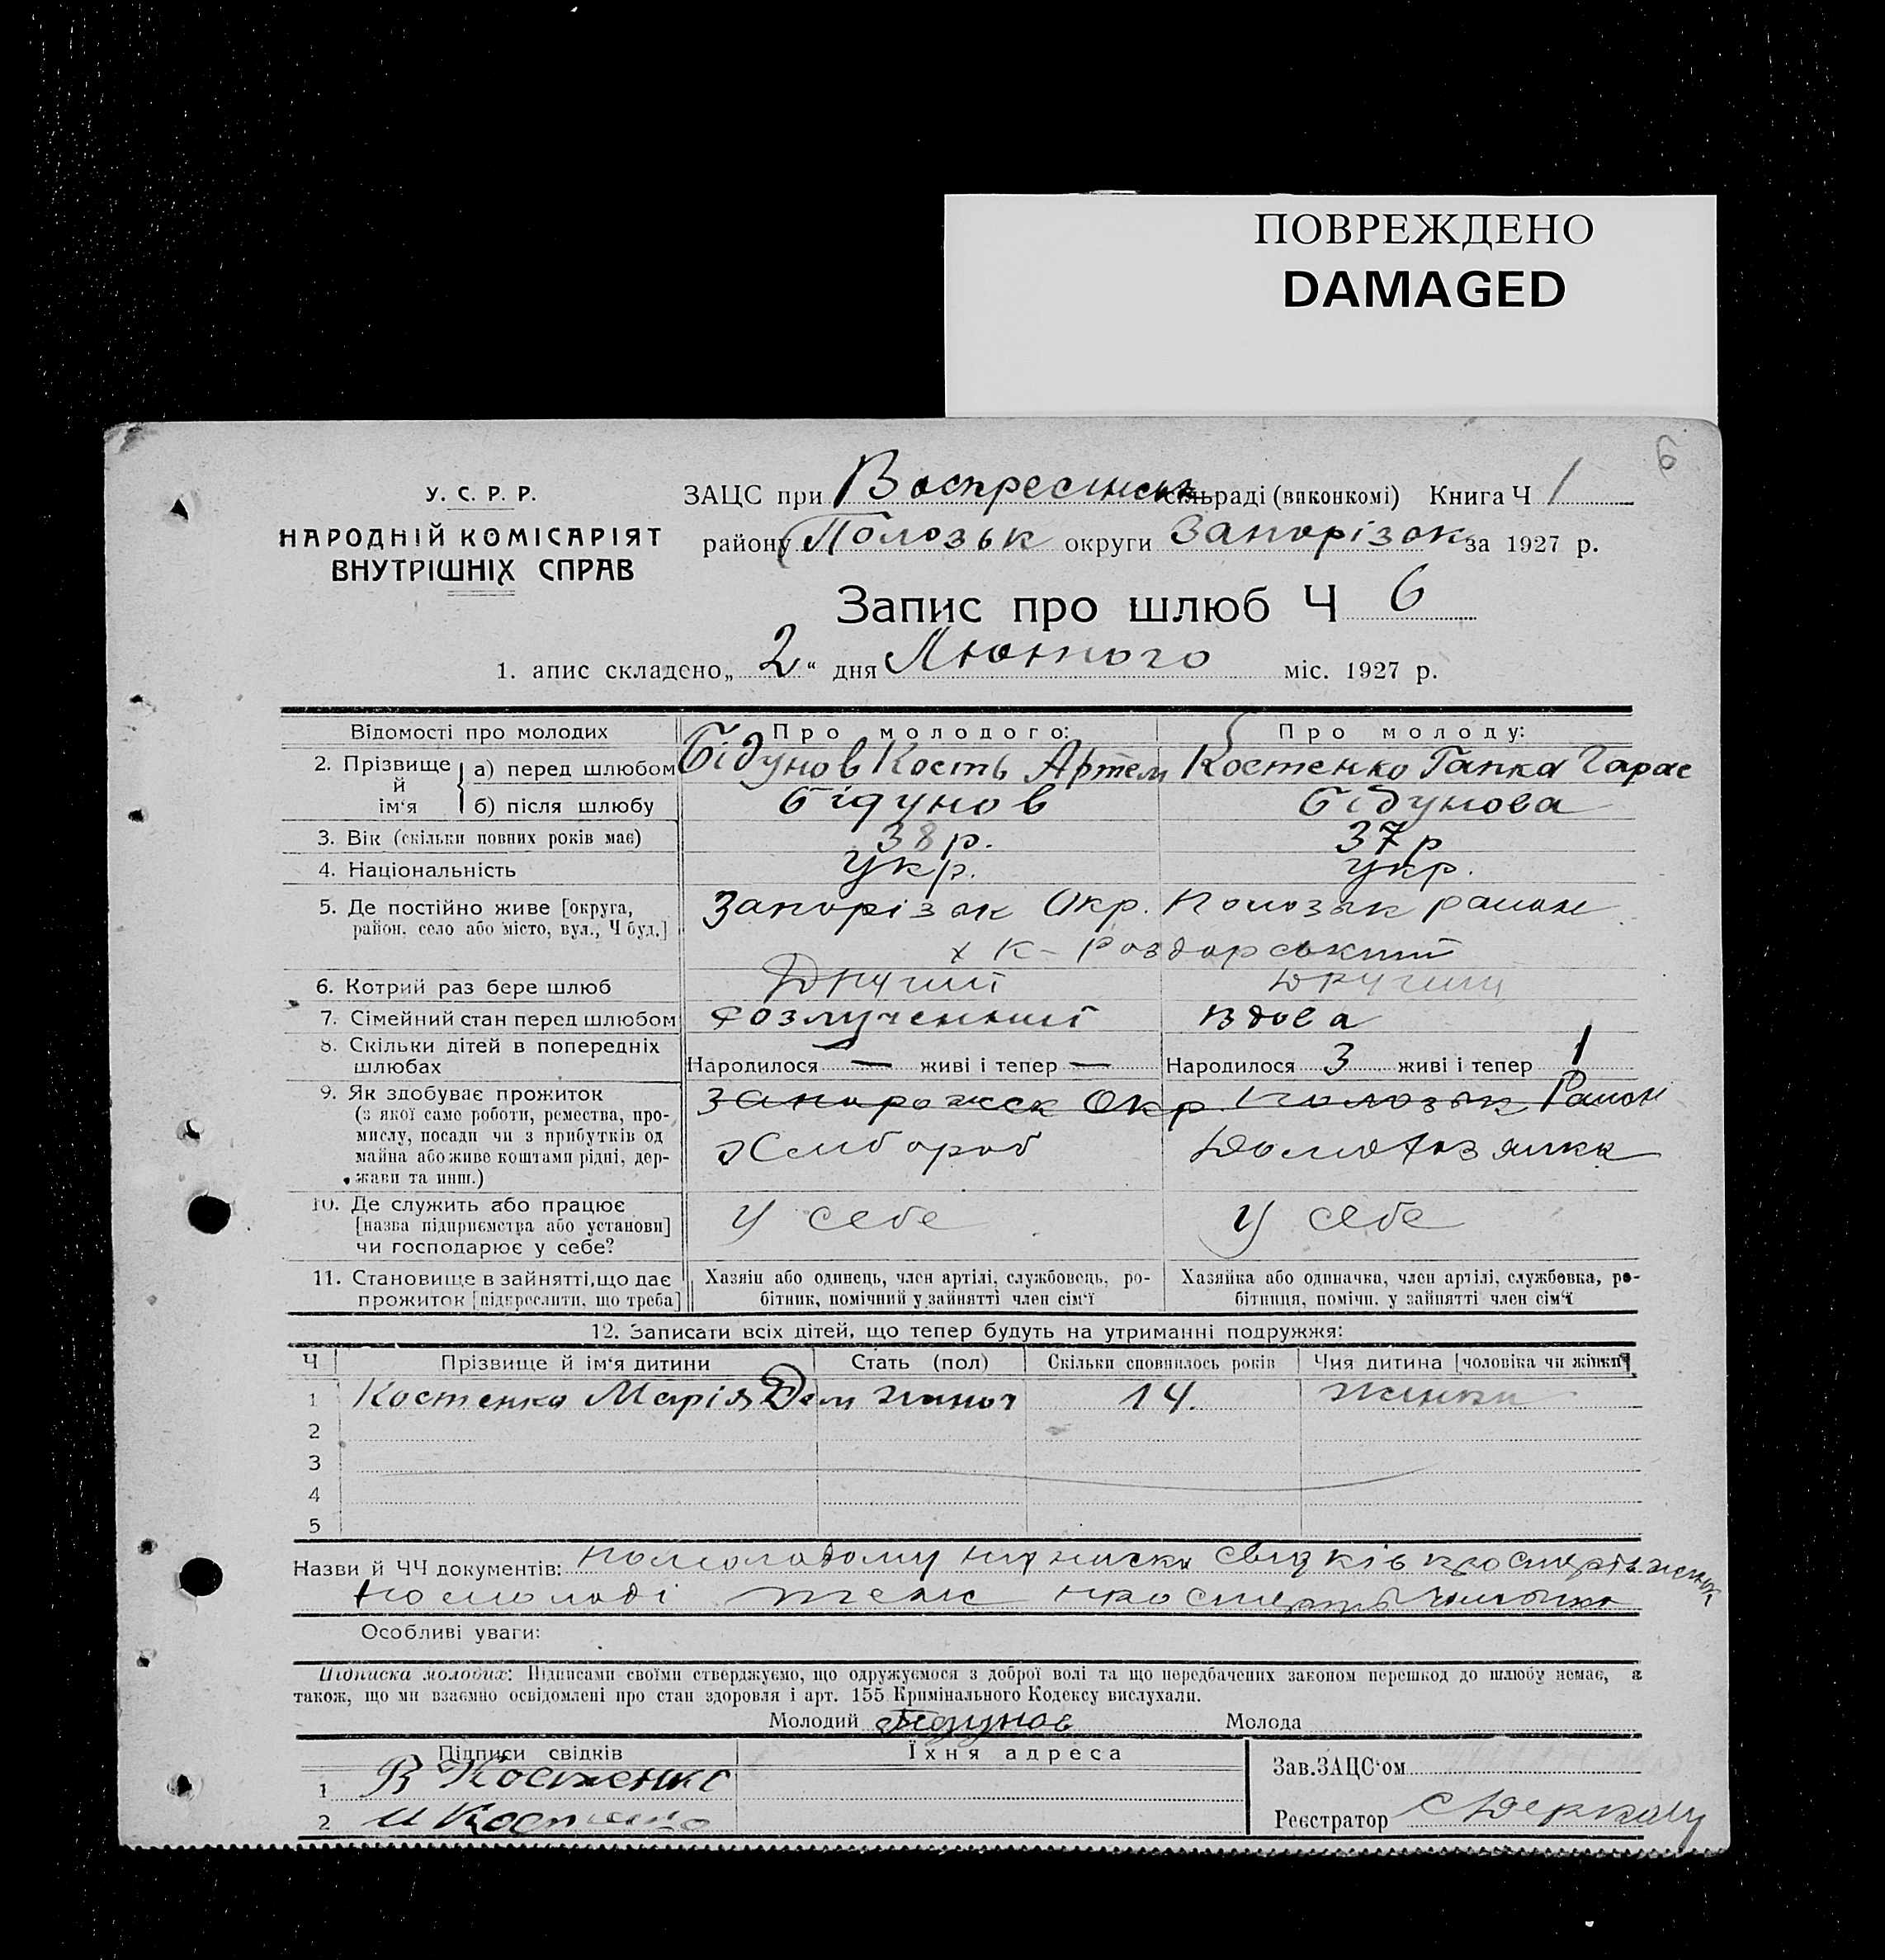 ПОВРЕЖДЕНО
DAMAGED
6
У. С. Р. Р.
НАРОДНІЙ КОМІСАРІЯТ
ВНУТРІШНІХ СПРАВ
ЗАЦС при Воскресинськ сільраді (виконкомі) Книга Ч 1
району Полозьк округи Запорізьк за 1927 р.
Запис про шлюб Ч 6
1. апис складено „ 2 “ дня Лютого міс. 1927 р.
Відомості про молодих Про молодого: Про молоду:
2. Прізвище й ім‘я а) перед шлюбом Бідунов Кость Артем Костенко Гапка Тарас
б) після шлюбу Бідунов Бідунова
3. Вік (скільки повних років має) 38 р. 37 р
4. Національність укр. укр.
5. Де постійно живе [округа, Запорізьк Окр. Полозьк район
район, село або місто, вул., Ч буд.]
х К- Роздорський
6. Котрий раз бере шлюб Другий Другий
7. Сімейний стан перед шлюбом розлученний вдова
8. Скільки дітей в попередніх
шлюбах Народилося — живі і тепер — Народилося 3 живі і тепер 1
9. Як здобуває прожиток Запорожск Окр. Полозьк Район
(з якої саме роботи, ремества, про-
мислу, посади чи з прибутків од Хлибороб Домохазяйка
майна або живе коштами рідні, дер-
жави та инш.)
10. Де служить або працює у себе у себе
[назва підприємства або установи]
чи господарює у себе?
11. Становище в зайнятті, що дає Хазяін або одинець, член артілі, службовець, ро- Хазяйка або одиначка, член артілі, службовка, ро-
прожиток [підкреслити, що треба] бітник, помічний у зайнятті член сім‘ї бітниця, помічн. у зайнятті член сім‘ї
12. Записати всіх дітей, що тепер будуть на утриманні подружжя:
Ч Прізвище й ім‘я дитини Стать (пол) Скільки сповнилось років Чия дитина [чоловіка чи жінки]
1 Костенко Марія Дем жиноч 14. жинки
2
3
4
5
Назви й ЧЧ документів: помолодому свидків про смерть
помолоді теж про смерть
Особливі уваги:
Підписка молодих: Підписами своїми стверджуємо, що одружуємося з доброї волі та що передбачених законом перешкод до шлюбу немає, а
також, що ми взаємно освідомлені про стан здоровля і арт. 155 Кримінального Кодексу вислухали.
Молодий Бедунов Молода
Підписи свідків Їхня адреса
1 В Костенко Зав. ЗАЦС‘ом
2 И Костенко Реєстратор